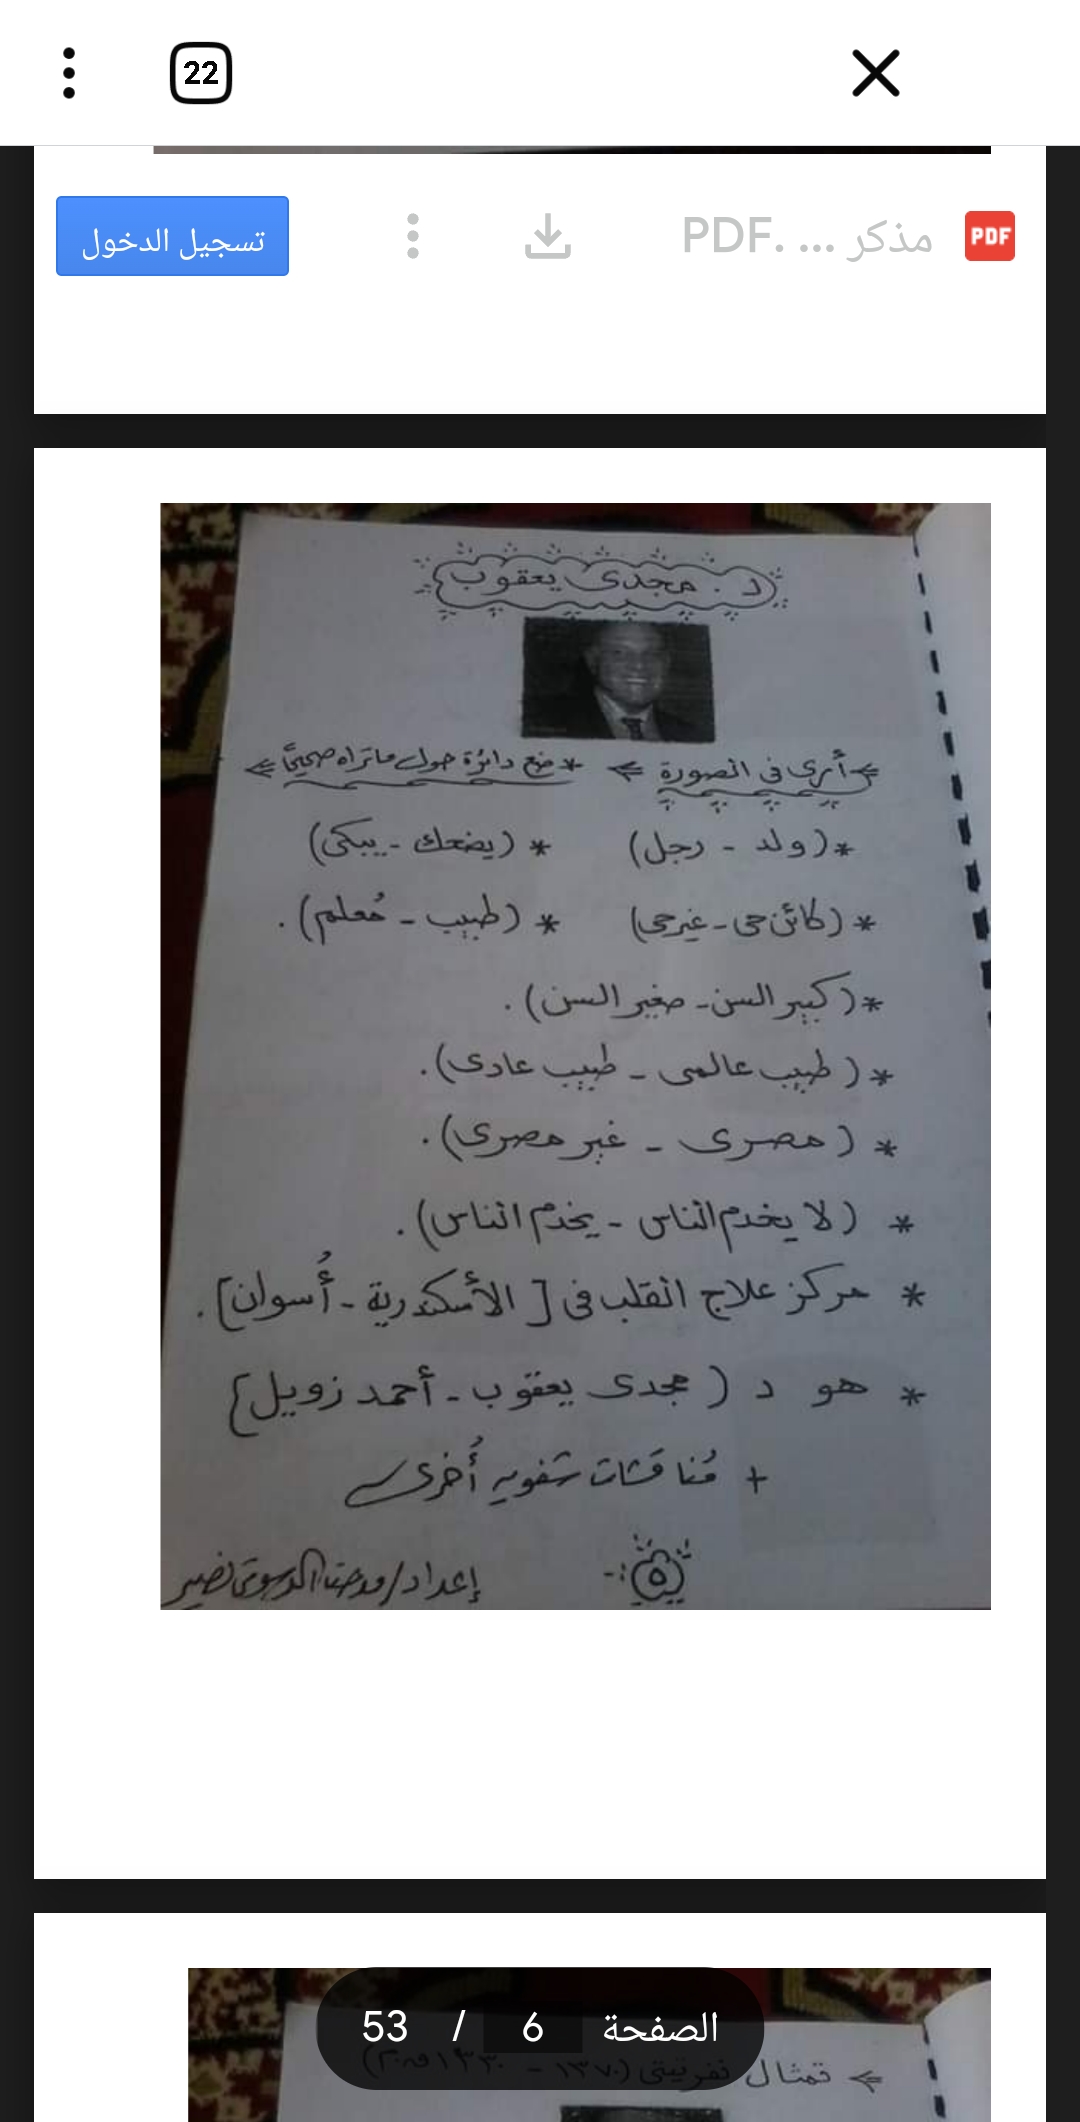 22
PDF مذكر ... .PDF تسجيل الدخول
د. مجدى يعقوب
أرى فى الصورة * ضع دائرة حول ماتراه صحيحًا
* (ولد - رجل) * (يضحك - يبكى)
* (كائن حى - غير حى) * (طبيب - مُعلم).
* (كبير السن - صغير السن).
* (طبيب عالمى - طبيب عادى).
* (مصرى - غير مصرى).
* (لا يخدم الناس - يخدم الناس).
* مركز علاج القلب فى [الأسكندرية - أُسوان].
* هو د (مجدى يعقوب - أحمد زويل]
+ مُناقشات شفويه أُخرى
٥
إعداد/
الصفحة 6 / 53
تمثال نفرتيتى (١٣٧٠ - ١٣٣٠ ق.م)